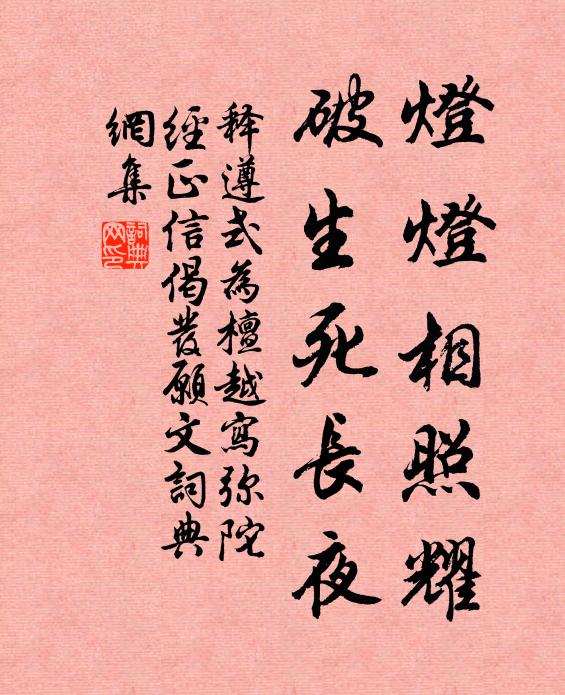 燈燈相照耀
破生死長夜
释遵式為檀越寫弥陀
經正信偈發願文詞典
網集
詞典
网印